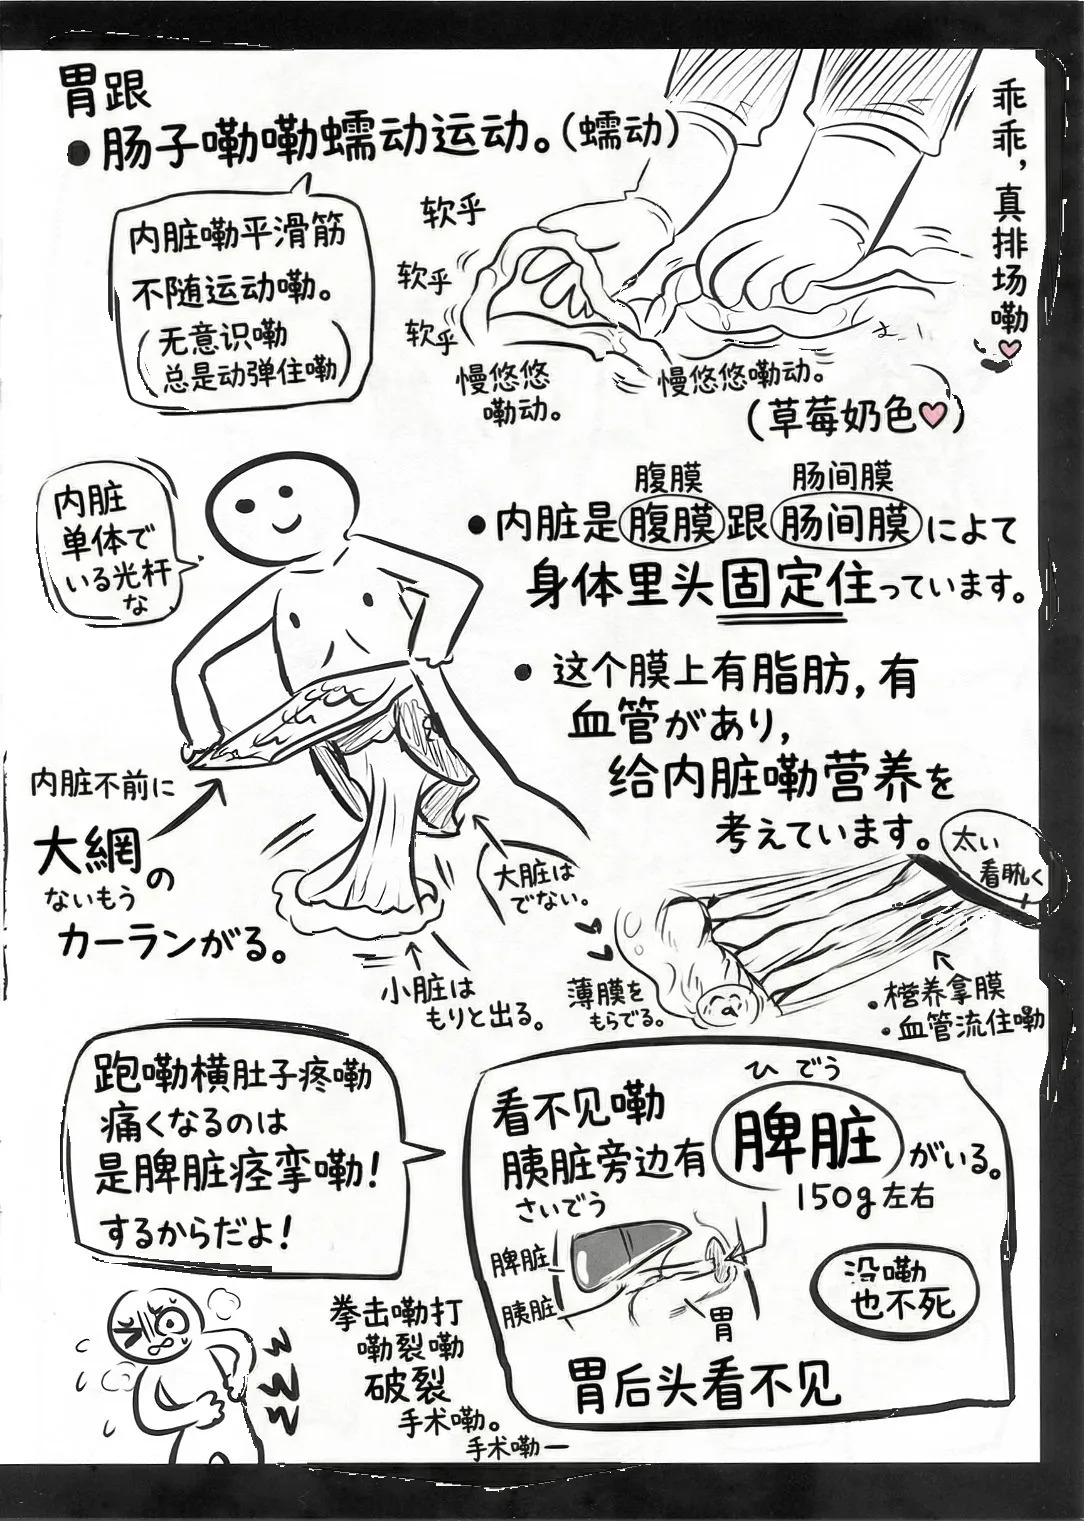 胃跟
●肠子嘞嘞蠕动运动。(蠕动)
乖乖，真排场嘞♥
内脏嘞平滑筋
不随运动嘞。
(无意识嘞
总是动弹住嘞)
软乎
软乎
软乎
慢悠悠
嘞动。
慢悠悠嘞动。
(草莓奶色♥)
内脏
单体で
いる光杆
な
腹膜 肠间膜
●内脏是腹膜跟肠间膜によて
身体里头固定住っています。
●这个膜上有脂肪，有
血管があり，
给内脏嘞营养を
考えています。
内脏不前に
大網の
ないもう
カーランがる。
大脏は
でない。
小脏は
もりと出る。
太い
薄膜を
もらでる。
・营养拿膜
・血管流住嘞
跑嘞横肚子疼嘞
痛くなるのは
是脾脏痉挛嘞！
するからだよ！
看不见嘞
ひどう
胰脏旁边有脾脏がいる。
さいどう
150g左右
脾脏
胰脏
胃
没嘞
也不死
胃后头看不见
拳击嘞打
嘞裂嘞
破裂
手术嘞。
手术嘞一